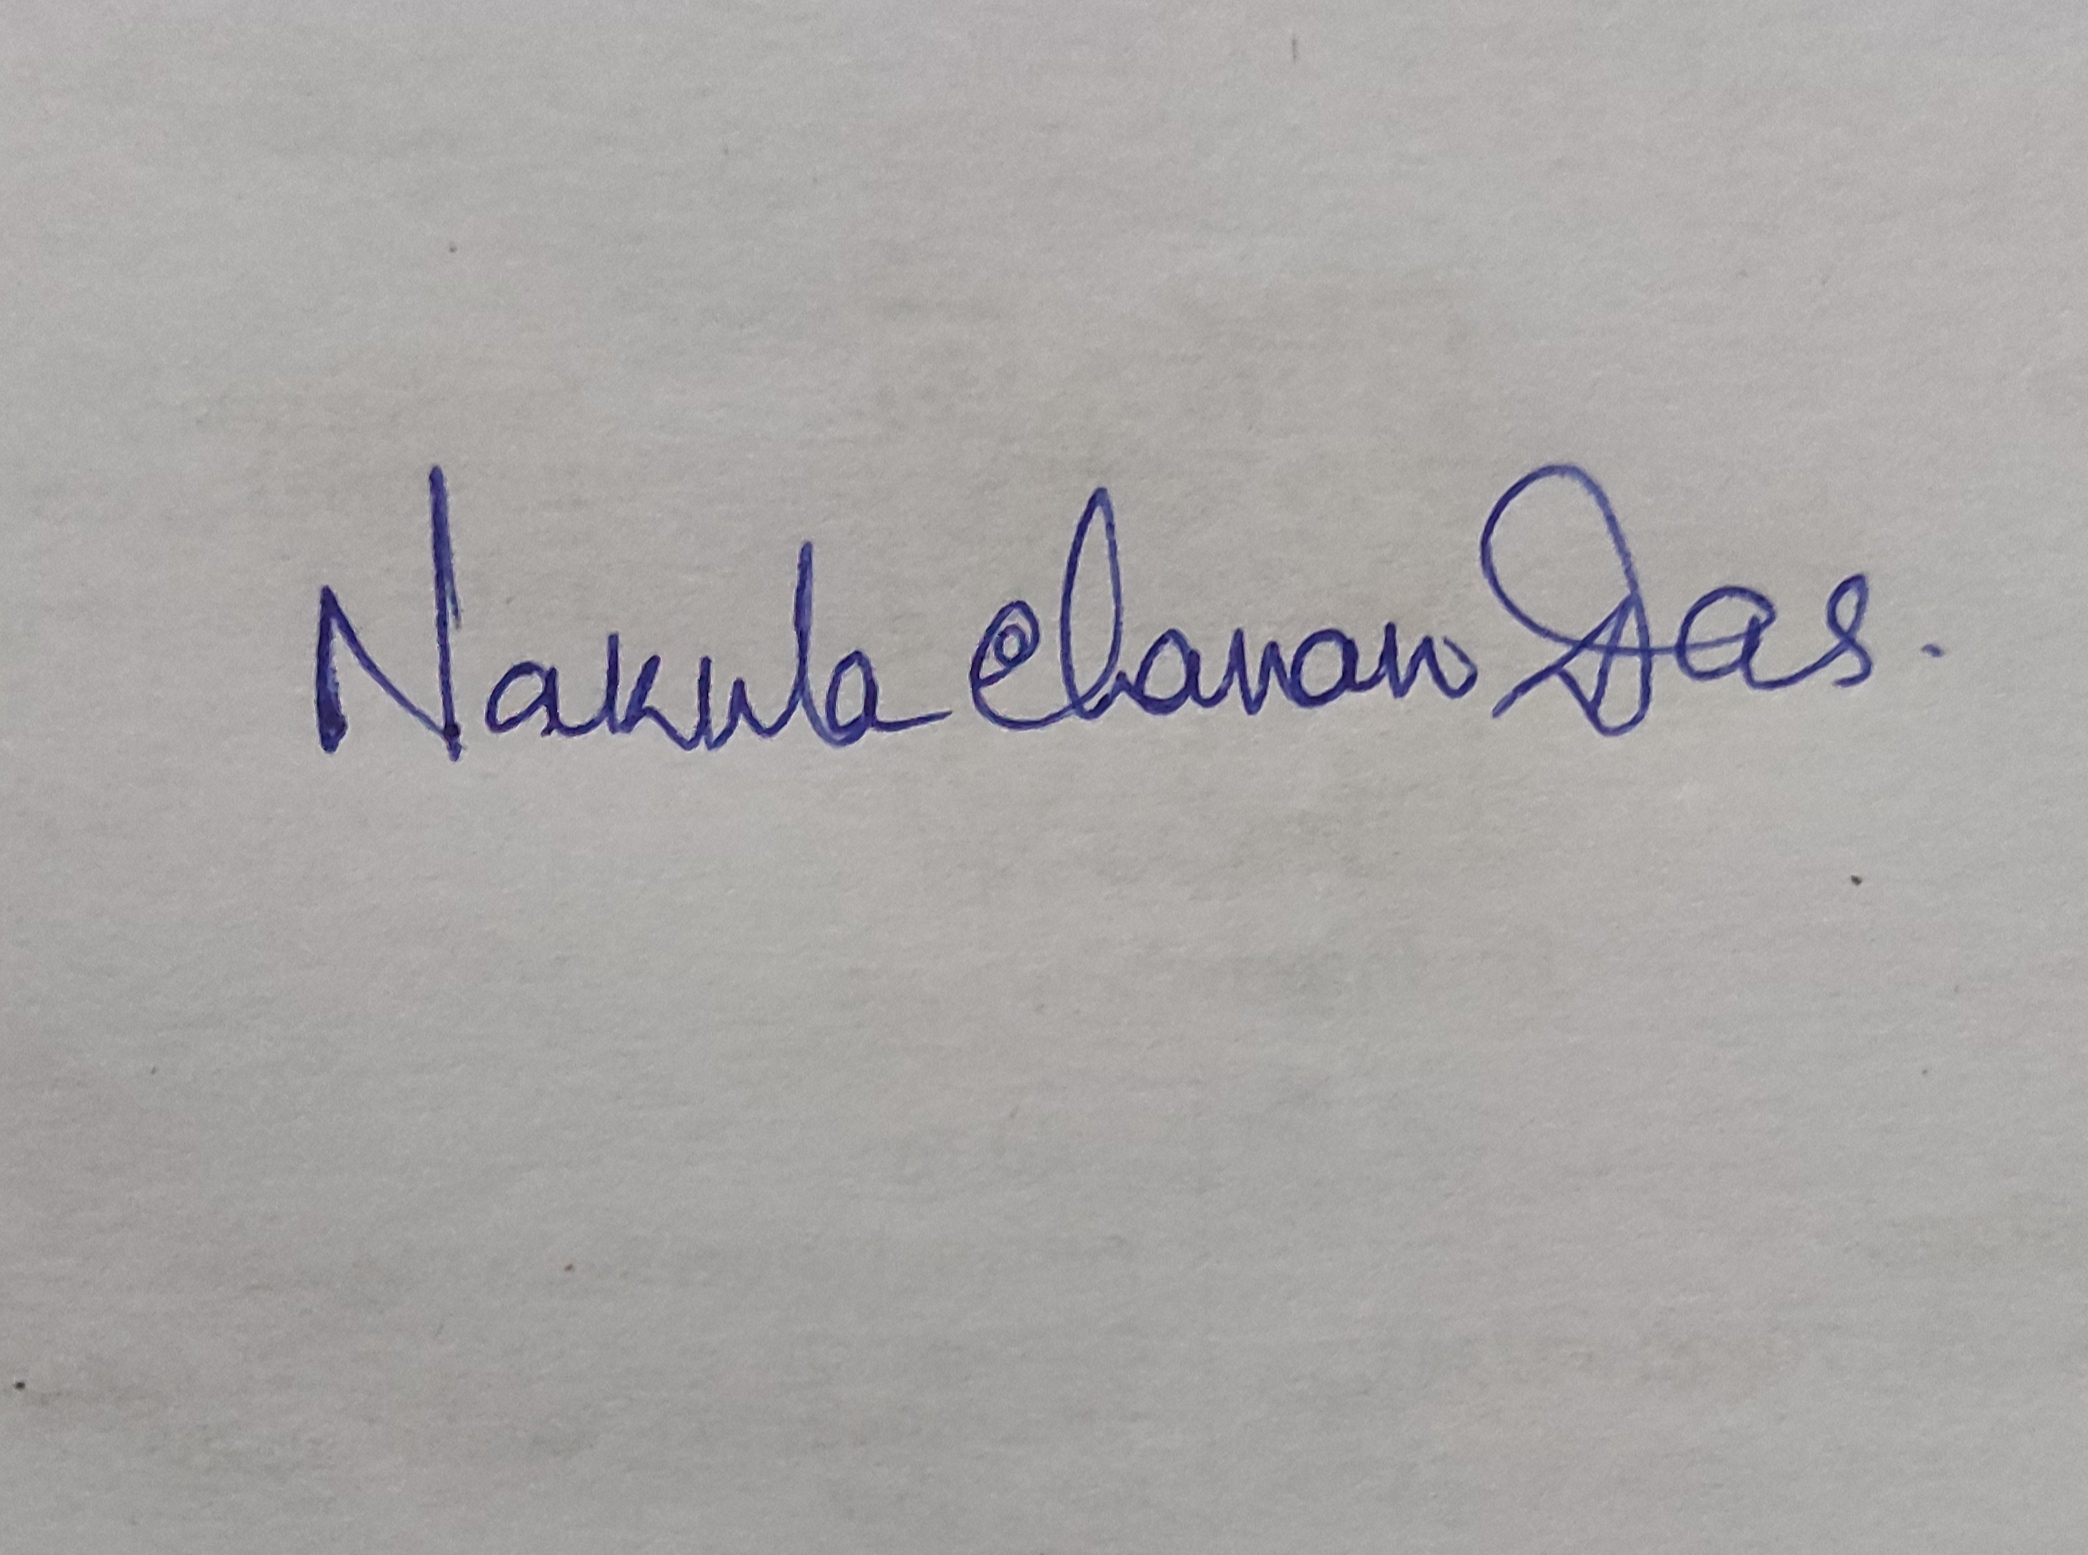 Nakula Charan Das.